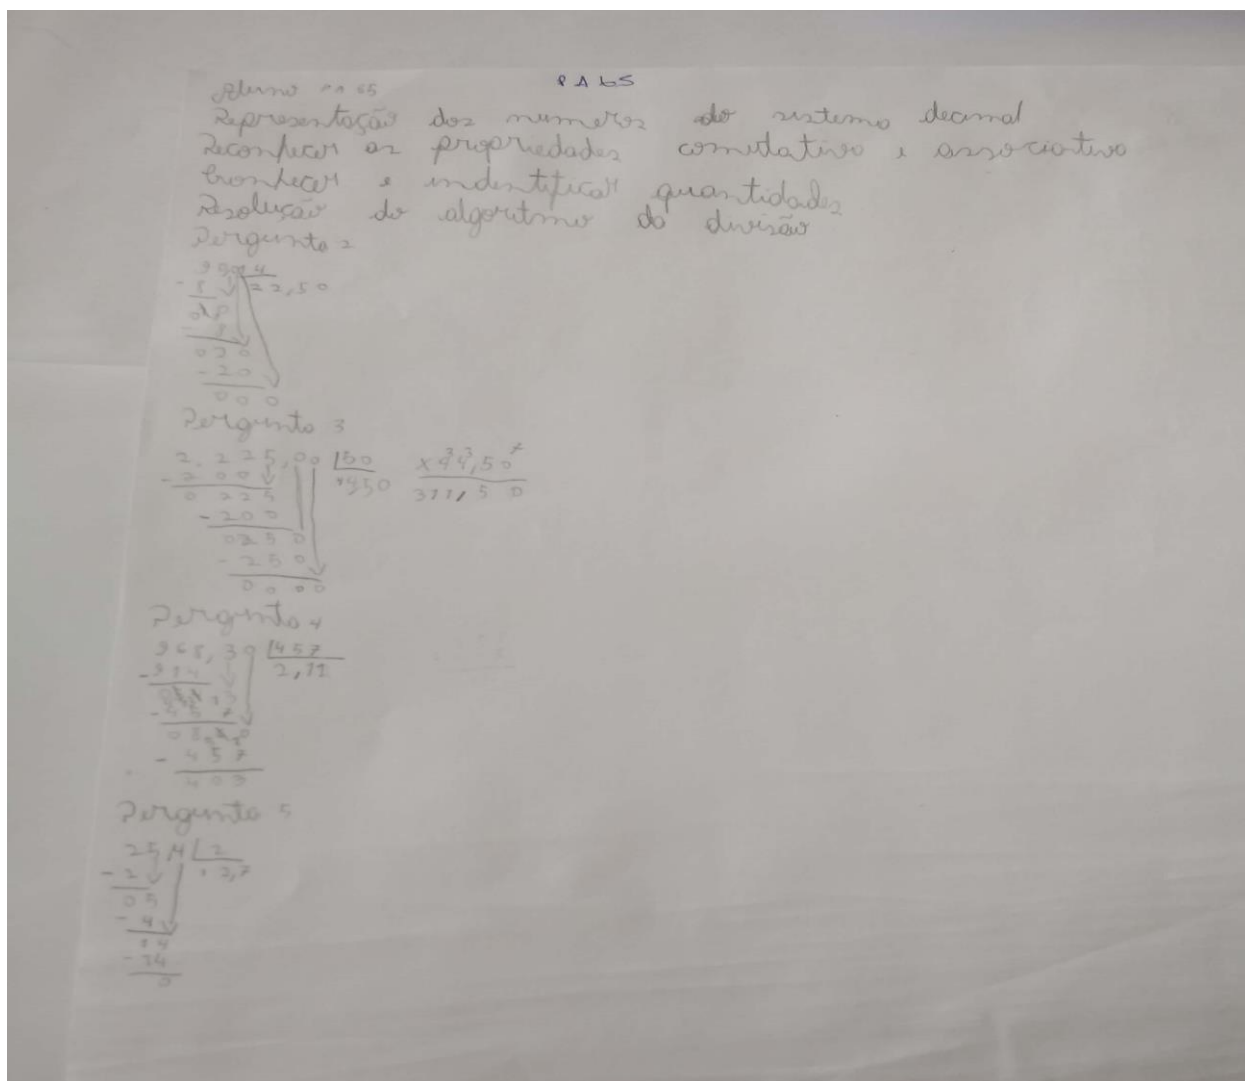 PA65
Aluno PA 65
Representação dos numeros do sistema decimal
Reconhecer as propriedades comutativa e associativa
Conhecer e indentificar quantidades
Resolução do algoritmo da divisão
Pergunta 2
4
22,50
020
-20
000
Pergunta 3
2.225,00 50
-200
0225
-200
0250
-250
0000
x44,50 7
311,50
Pergunta 4
968,30 457
-914 2,11
-457
403
Pergunta 5
25,4 2
-2
05
-4
14
-14
0